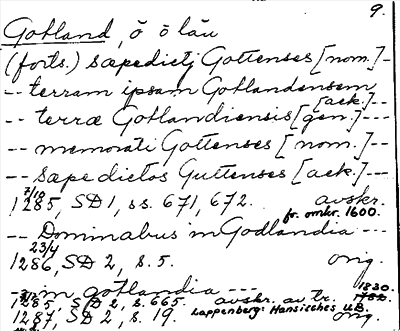 9.
Gotland, ö ö län
(forts.) sæpedictj Gottenses [nom.] --
-- terram ipsam Gotlandensem
[ack.] --
-- terræ Gotlandiensis [gen.] ---
-- memorati Gottenses [nom.] ---
-- sæpedictos Guttenses [ack.] ---
7/10
1285, SD 1, ss. 671, 672. avskr.
fr. omkr. 1600.
-- Dominabus in Godlandia ---
23/4
1286, SD 2, s. 5. orig.
-- in gotlandia --- 1830.
1285, SD 2, s. 665. avskr. av tr.
Lappenberg: Hansisches U.B.
1287, SD 2, s. 19. orig.